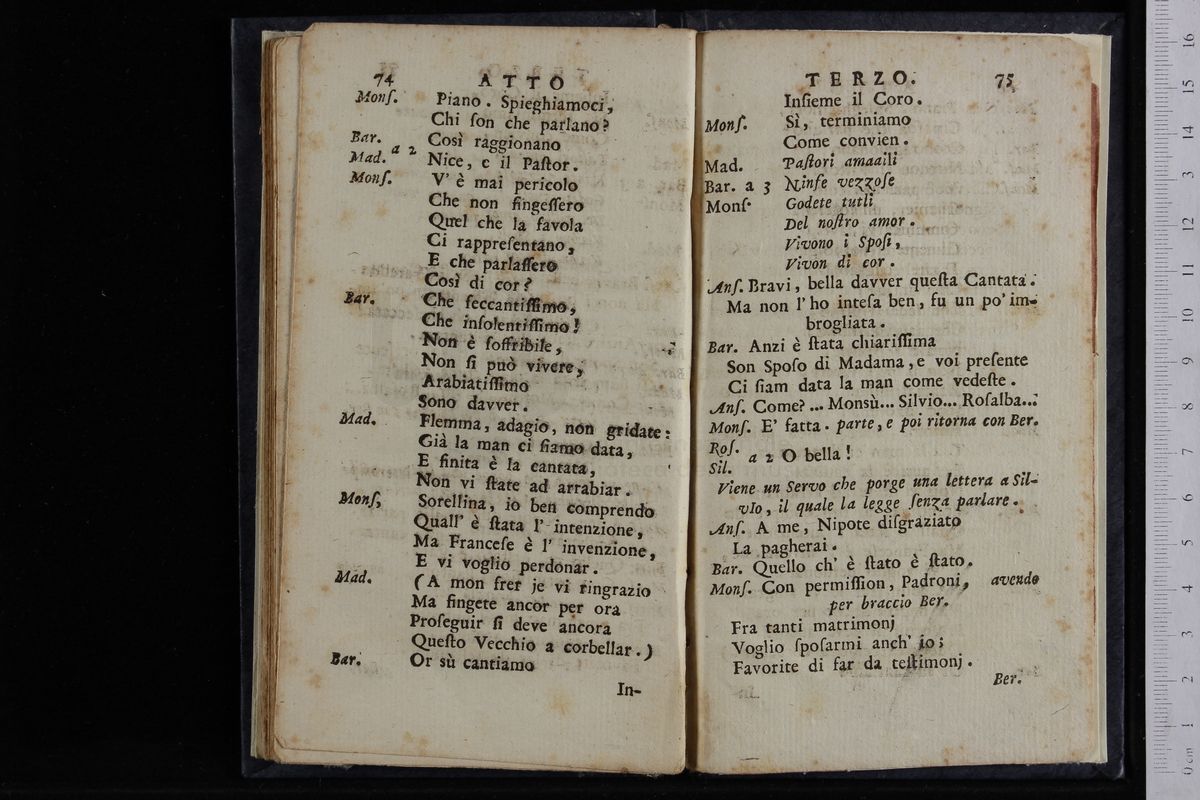 74 ATTO
Monſ. Piano. Spieghiamoci,
Chi ſon che parlano?
Bar. Così raggionano
a 2
Mad. Nice, e il Paſtor.
Monſ. V' è mai pericolo
Che non fingeſſero
Quel che la favola
Ci rappreſentano,
E che parlaſſero
Così di cor?
Bar. Che ſeccantiſſimo,
Che inſolentiſſimo!
Non è ſoffribile,
Non ſi può vivere,
Arabiatiſſimo
Sono davver.
Mad. Flemma, adagio, non gridate:
Già la man ci ſiamo data,
E finita è la cantata,
Non vi ſtate ad arrabiar.
Monſ, Sorellina, io ben comprendo
Quall' è ſtata l' intenzione,
Ma Franceſe è l' invenzione,
E vi voglio perdonar.
Mad. (A mon frer je vi ringrazio
Ma fingete ancor per ora
Proſeguir ſi deve ancora
Queſto Vecchio a corbellar.)
Bar. Or sù cantiamo
In-
TERZO. 75
Inſieme il Coro.
Monſ. Sì, terminiamo
Come convien.
Mad. Paſtori amaaili
Bar. a 3 Ninfe vezzoſe
Monſ. Godete tutli
Del noſtro amor.
Vivono i Spoſi,
Vivon di cor.
Anſ. Bravi, bella davver queſta Cantata.
Ma non l' ho inteſa ben, fu un po' im-
brogliata.
Bar. Anzi è ſtata chiariſſima
Son Spoſo di Madama, e voi preſente
Ci ſiam data la man come vedeſte.
Anſ. Come?... Monsù... Silvio... Roſalba...
Monſ. E' fatta. parte, e poi ritorna con Ber.
Roſ.
a 2 O bella!
Sil.
Viene un Servo che porge una lettera a Sil-
vIo, il quale la legge ſenza parlare.
Anſ. A me, Nipote diſgraziato
La pagherai.
Bar. Quello ch' è ſtato è ſtato.
Monſ. Con permiſſion, Padroni, avendo
per braccio Ber.
Fra tanti matrimonj
Voglio ſpoſarmi anch' io;
Favorite di far da teſtimonj.
Ber.
0 cm 1 2 3 4 5 6 7 8 9 10 11 12 13 14 15 16